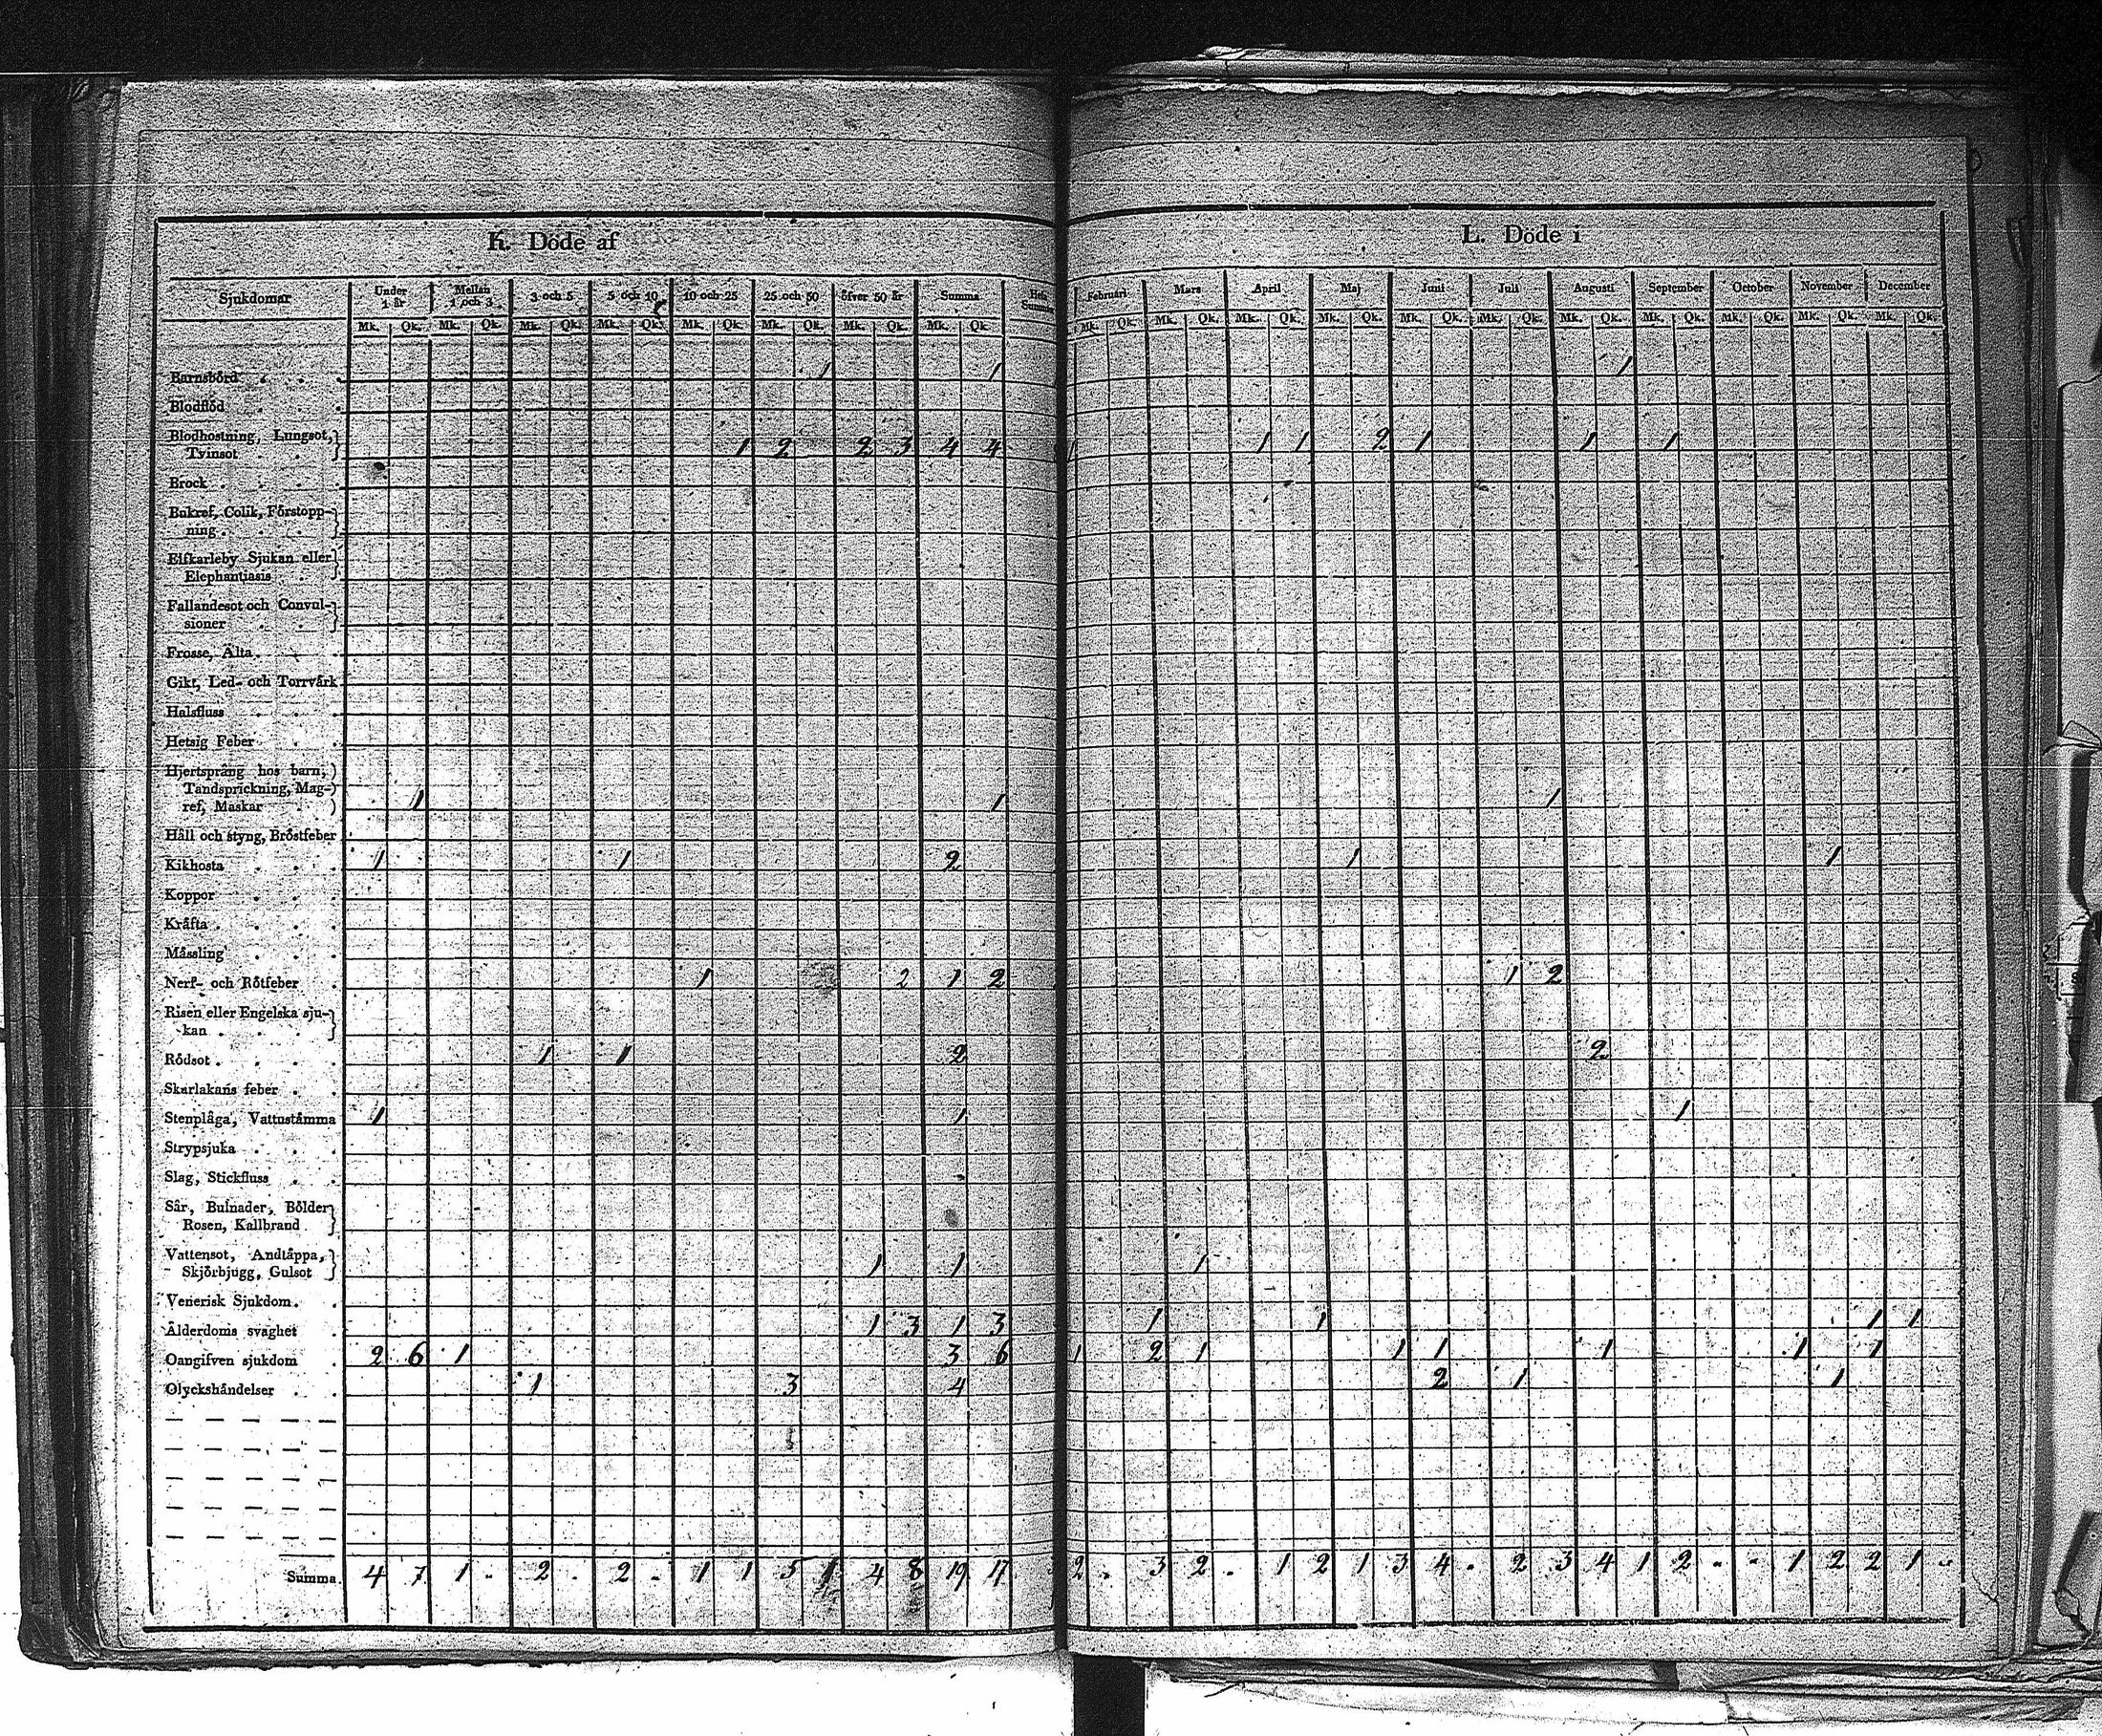 K. Döde af
Sjukdomar Under 1 år Mellan 1 och 3 3 och 5 5 och 10 10 och 25 25 och 50 öfver 50 år Summa Hela Summa
Mk. Qk. Mk. Qk. Mk. Qk. Mk. Qk. Mk. Qk. Mk. Qk. Mk. Qk. Mk. Qk.
Barnsbörd 1 1
Blodflöd
Blodhostning, Lungsot,
Tvinsot 1 2 2 3 4 4
Brock
Bukref, Colik, Förstopp-
ning
Elfkarleby Sjukan eller
Elephantiasis
Fallandesot och Convul-
sioner
Frosse, Älta
Gikt, Led- och Torrvärk
Halsfluss
Hetsig Feber
Hjertsprång hos barn,
Tandsprickning, Mag-
ref, Maskar 1 1
Håll och styng, Bröstfeber
Kikhosta 1 1 2
Koppor
Kräfta
Mässling
Nerf- och Rötfeber 1 2 1 2
Risen eller Engelska sju-
kan
Rödsot 1 1 2
Skarlakans feber
Stenplåga, Vattustämma 1 1
Strypsjuka
Slag, Stickfluss
Sår, Bulnader, Bölder
Rosen, Kallbrand
Vattensot, Andtäppa,
Skjörbjugg, Gulsot 1 1
Venerisk Sjukdom
Ålderdoms svaghet 1 3 1 3
Oangifven sjukdom 2 6 1 3 6
Olyckshändelser 1 3 4
Summa 4 7 1 - 2 - 2 - 1 1 5 1 4 8 19 17
L. Döde i
Februari Mars April Maj Juni Juli Augusti September October November December
Mk. Qk. Mk. Qk. Mk. Qk. Mk. Qk. Mk. Qk. Mk. Qk. Mk. Qk. Mk. Qk. Mk. Qk. Mk. Qk. Mk. Qk.
1
1 1 1 2 1 1 1
1
1 1
1 2
2
1
1
1 1 1 1
1 2 1 1 1 1 1 1
2 1 1
2 - 3 2 - 1 2 1 3 4 - 2 3 4 1 2 - - 1 2 2 1 -